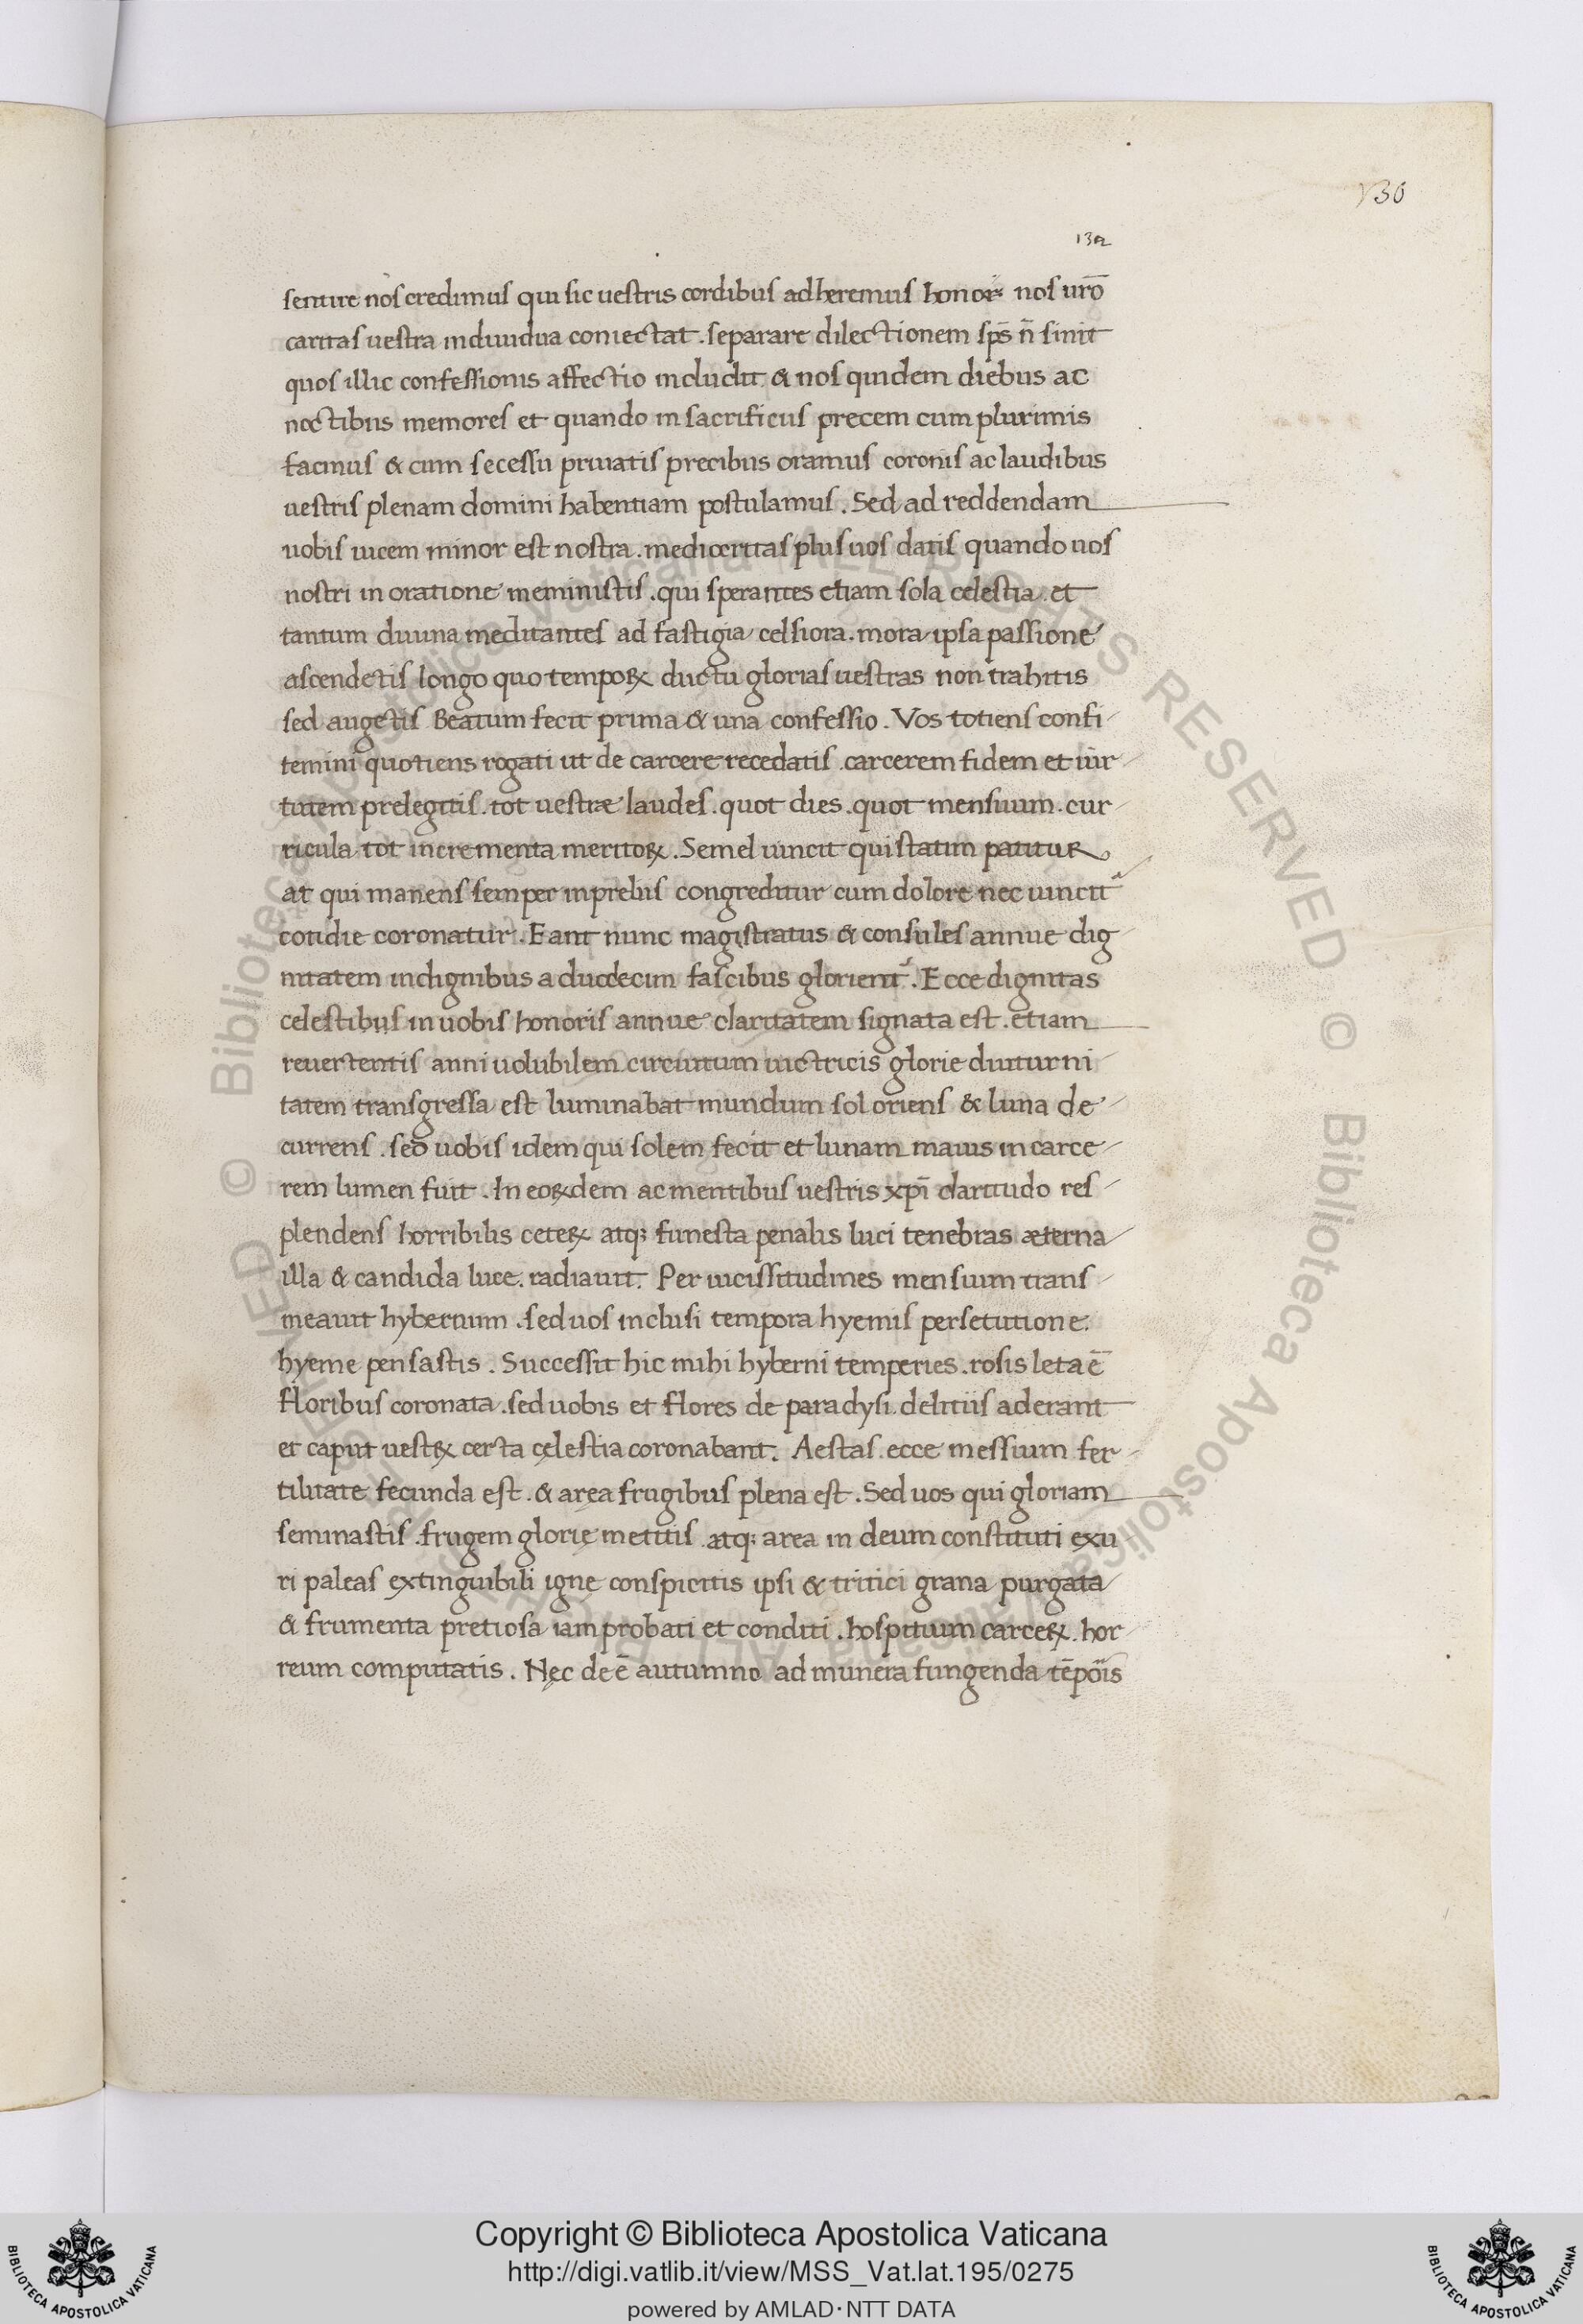 130
132
sentire nos credimus qui sic uestris cordibus adheremus honor nos ur̅o
caritas uestra indiuidua coniectat . separare dilectionem sp̅s n̅ sinit
quos illic confessionis affectio includit & nos quidem diebus ac
noctibus memores et quando in sacrificiis precem cum plurimis
facimus & cum secessu priuatis precibus oramus coronis ac laudibus
uestris plenam domini habentiam postulamus . Sed ad reddendam
uobis uicem minor est nostra . mediocritas plus uos datis quando uos
nostri in oratione meministis . qui sperantes etiam sola celestia . et
tantum diuina meditantes ad fastigia celsiora . mora ipsa passione
ascendetis longo quo temporꝝ ductu glorias uestras non trahitis
sed augetis Beatum fecit prima & una confessio . Vos totiens confi
temini quotiens rogati ut de carcere recedatis . carcerem fidem et uir
tutem prelegitis . tot uestræ laudes . quot dies . quot mensuum . cur
ricula tot incrementa meritoꝝ . Semel uincit qui statim patitur
at qui manens semper in preliis congreditur cum dolore nec uincit᷑
cotidie coronatur . Eant nunc magistratus & consules annue dig
nitatem indignibus a duodecim fascibus glorient᷑ . Ecce dignitas
celestibus in uobis honoris annue claritatem signata est . etiam
reuertentis anni uolubilem circuitum uictricis glorie diuturni
tatem transgressa est luminabat mundum sol oriens & luna de
currens . sed uobis idem qui solem fecit et lunam maius in carce
rem lumen fuit . In eoꝝdem ac mentibus uestris xp̅i claritudo res
plendens horribilis ceteꝝ atq; funesta penalis luci tenebras æterna
illa & candida luce . radiauit . Per uicissitudines mensium trans
meauit hybernum . sed uos inclusi tempora hyemis persetutione .
hyeme pensastis . Successit hic mihi hyberni temperies . rosis leta e̅
floribus coronata . sed uobis et flores de paradysi . delitiis aderant
et caput uestꝝ certa cęlestia coronabant . Aestas . ecce messium fer
tilitate fecunda est . & area frugibus plena est . Sed uos qui gloriam
seminastis . frugem glorię metitis . atq; area in deum constituti exu
ri paleas extinguibili ignę conspicitis ipsi & tritici grana purgata
& frumenta pretiosa iam probati et conditi . hospitium carceꝝ . hor
reum computatis . Nęc de e̅ autumno ad munera fungenda te̅poris
© Biblioteca Apostolica Vaticana ALL RIGHTS RESERVED
© Biblioteca Apostolica Vaticana ALL RIGHTS RESERVED
Copyright © Biblioteca Apostolica Vaticana
http://digi.vatlib.it/view/MSS_Vat.lat.195/0275
powered by AMLAD·NTT DATA
BIBLIOTECA APOSTOLICA VATICANA
BIBLIOTECA APOSTOLICA VATICANA